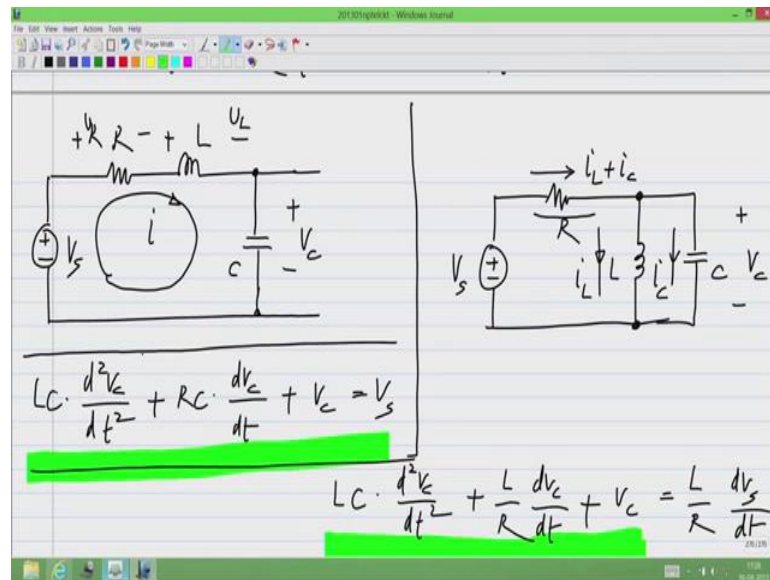 201301nptelckt - Windows Journal
File Edit View Insert Actions Tools Help
Page Width
+ V_R R - + L V_L -
V_s
i
C
+
V_c
-
LC · d²V_c/dt² + RC · dV_c/dt + V_c = V_s
→ i_L + i_c
R
V_s
i_L
L
i_c
C
+
V_c
-
LC · d²V_c/dt² + L/R dV_c/dt + V_c = L/R dV_s/dt